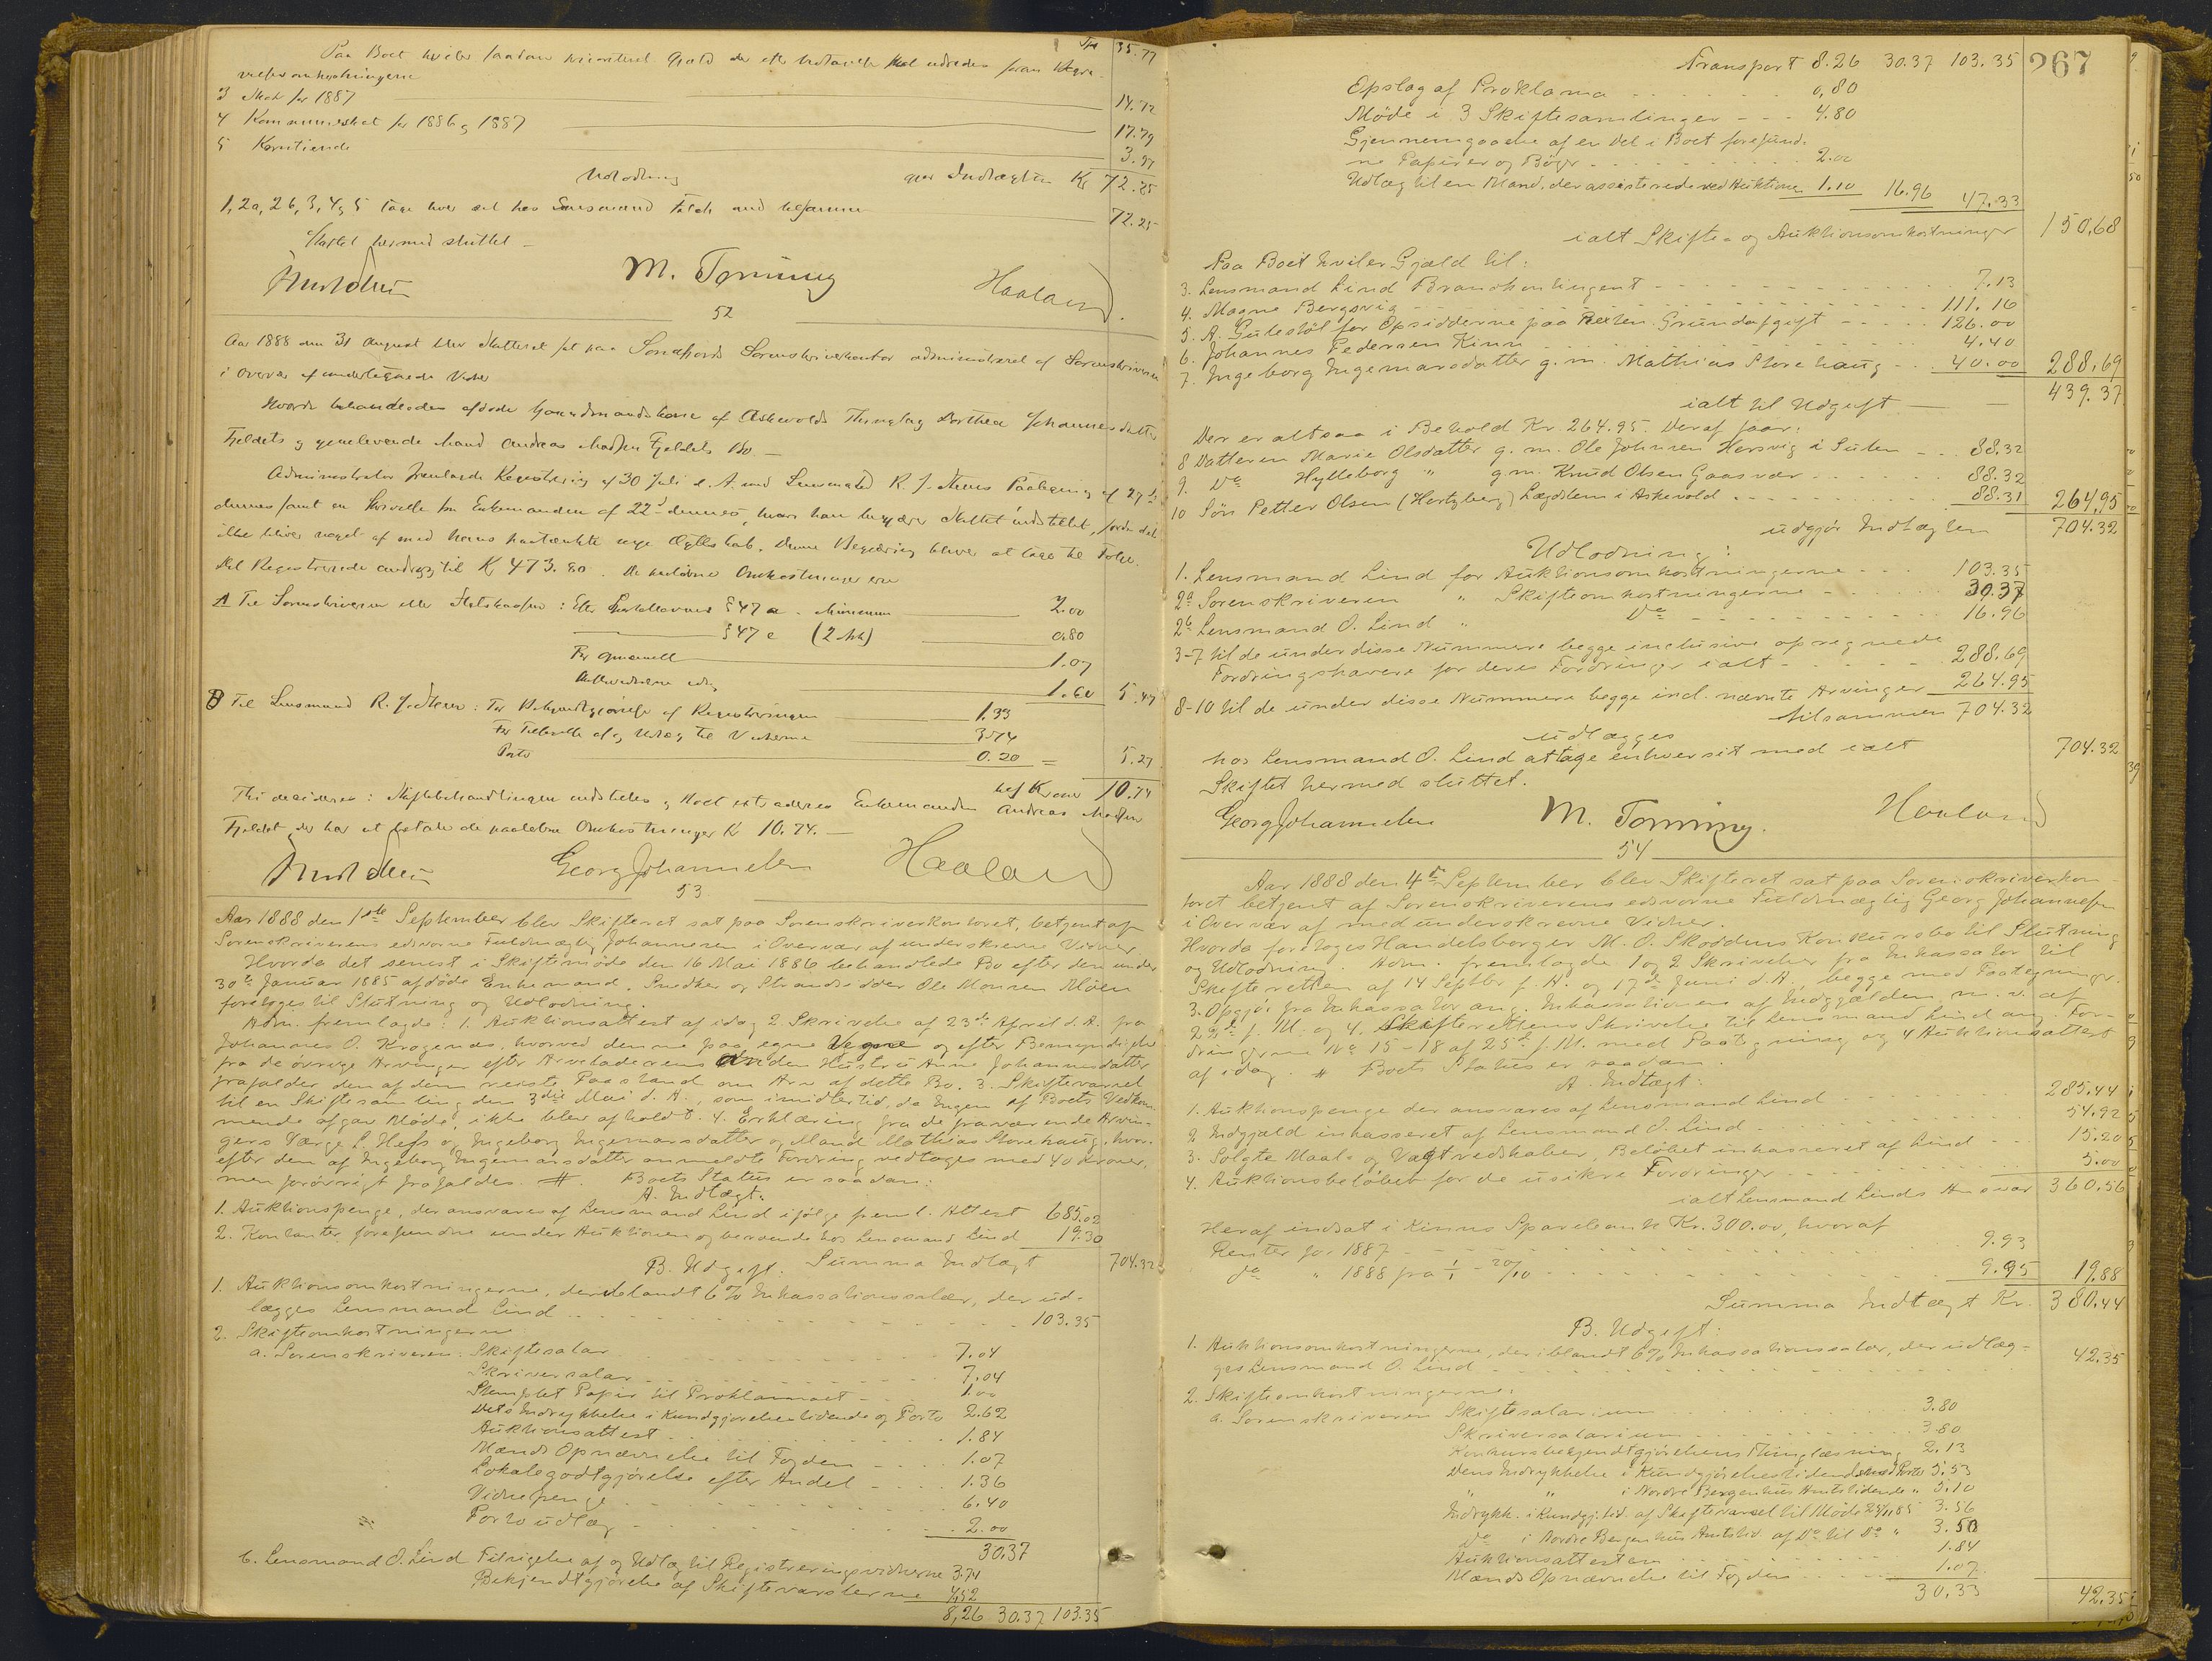 Tr 35.77
Paa Boet hviler saadan prioriteret Gjæld der efter Indtægten skal udredes foran Begra-
velsesomkostningerne
3 Skat for 1887 14.72
4 Kommuneskat for 1886 og 1887 17.79
5 Korntiende 3.97
Udlodning gjør Indtægten Kr 72.25
1, 2a, 2b, 3, 4 og 5 tage hver sit hos Lensmand med tilsammen 72.25
Skiftet hermed sluttet -
M. Torning Haaland
52
Aar 1888 den 31 August blev Skifteret sat paa Søndfjords Sorenskriverkontor administreret af Sorenskriveren
i Overvær af undertegnede Vidner
Hvorda behandledes afdøde Gaardmandskone af Askevolds Thinglag Dorthea Johannesdatter
Fjeldets og gjenlevende Mand Andreas Madsen Fjeldets Bo -
Administrator fremlagde Registrering af 30 Juli d. A. med Lensmand R. J. Paategning af 27de
dennes samt en Skrivelse fra Enkemanden af 22de dennes, hvori han begjærer Skiftet indstillet, fordi det
ikke bliver noget af med hans paatænkte nye Ægteskab. Denne Begjæring bliver at tage til Følge.
Det Registrerede androg til Kr 473.80. De paaløbne Omkostninger ere
A Til Sorenskriveren eller Statskassen: Efter Sportelloven § 47 a. Minimum 2.00
§ 47 c (2 ) 0.80
For 1.07
1.60 5.47
B Til Lensmand R. J. : For Bekjendtgjørelse af Registreringen 1.33
For Tilsigelse af og Udlæg til Vidnerne 3.74
Porto 0.20 = 5.27
Kroner 10.74
Thi decideres: Skiftebehandlingen indstilles og Boet extraderes Enkemanden Andreas Madsen
Fjeldet, der har at betale de paaløbne Omkostninger Kr 10.74. -
Georg Johannesen Haaland
53
Aar 1888 den 1ste September blev Skifteret sat paa Sorenskriverkontoret, betjent af
Sorenskriverens edsvorne Fuldmægtig Johannesen i Overvær af underskrevne Vidner.
Hvorda det senest i Skiftemøde den 16 Mai 1886 behandlede Bo efter den under
30te Januar 1885 afdøde Enkemand, Snedker og Strandsidder Ole Monsen Moen
foretoges til Slutning og Udlodning.
Adm. fremlagde: 1. Auktionsattest af idag 2. Skrivelse af 23de April d. A. fra
Johannes O. Kragenæs, hvorved denne paa egne Vegne og efter Bemyndigelse
fra de øvrige Arvinger efter Arveladerens anden Hustru Anne Johannesdatter
frafalder den af dem reiste Paastand om Arv af dette Bo. 3. Skiftevarsel
til en Skiftesamling den 3die Mai d. A., som imidlertid, da Ingen af Boets Vedkom-
mende afgav Møde, ikke blev afholdt. 4. Erklæring fra de fraværende Arvin-
gers Værge L. Hess og Ingeborg Ingemarsdatter og Mand Mathias Storehaug, hvor-
efter den af Ingeborg Ingemarsdatter anmeldte Fordring vedtages med 40 Kroner,
men forøvrigt frafaldes. # Boets Status er saadan:
A. Indtægt:
1. Auktionspenge, der ansvares af Lensmand Lind ifølge freml. Attest 685.02
2. Kontanter forefundne under Auktionen og beroende hos Lensmand Lind 19.30
Summa Indtægt 704.32
B. Udgift.
1. Auktionsomkostningerne, deriblandt 6 % Inkassationssalær, der ud-
lægges Lensmand Lind 103.35
2. Skifteomkostningerne
a. Sorenskriveren: Skiftesalær 7.04
Skriversalær 7.04
Stemplet Papir til Proklamaet 1.00
Dets Indrykkelse i Kundgjørelsestidende og Porto 2.62
Auktionsattest 1.84
Mænds Opnævnelse til Fogden 1.07
Lokalegodtgjørelse efter Andel 1.36
Vidnepenge 6.40
Portoudlæg 2.00
30.37
b. Lensmand O. Lind Tilsigelse af og Udlæg til Registreringsvidnerne 3.74
Bekjendtgjørelse af Skiftevarslerne 4.52
8,26 30.37 103.35
267
Transport 8.26 30.37 103.35
Opslag af Proklama 0,80
Møde i 3 Skiftesamlinger 4.80
Gjennemgaaelse af en Del i Boet forefund-
ne Papirer og Bøger 2.00
Udlæg til en Mand, der assisterede ved Auktionen 1.10 16.96 47.33
ialt Skifte- og Auktionsomkostninger 150,68
Paa Boet hviler Gjæld til:
3. Lensmand Lind Brandkontingent 7.13
4. Magne Bergsvig 111.16
5. A. Gulestøl for Opsidderne paa Grundafgift 126.00
6. Johannes Pedersen Kinn 4.40
7. Ingeborg Ingemarsdatter g. m. Mathias Storehaug 40.00 288.69
ialt til Udgift 439.37
Der er altsaa i Behold Kr. 264.95. Deraf faar:
8 Datteren Marie Olsdatter g. m. Ole Johnsen Hersvig i Sulen 88.32
9. Do Hylleborg " g. m. Knud Olsen Gaasvær 88.32
10 Søn Petter Olsen (Hertzberg) Lægdslem i Askevold 88.31 264,95
udgjør Indtægten 704.32
Udlodning:
1. Lensmand Lind for Auktionsomkostningerne 103.35
2a Sorenskriveren " Skifteomkostningerne 30.37
2b Lensmand O. Lind " Do 16.96
3-7 til de under disse Nummere begge inclusive opregnede
Fordringshavere for deres Fordringer ialt 288.69
8-10 til de under disse Nummere begge incl. nævnte Arvinger 264.95
tilsammen 704.32
udlægges
hos Lensmand O. Lind at tage enhver sit med ialt 704.32
Skiftet hermed sluttet.
Georg Johannesen M. Torning. Haaland
54
Aar 1888 den 4de September blev Skifteret sat paa Sorenskriverkon-
toret betjent af Sorenskriverens edsvorne Fuldmægtig Georg Johannesen
i Overvær af med underskrevne Vidner.
Hvorda foretoges Handelsborger M. O. Skoddens Konkursbo til Slutning
og Udlodning. Adm. fremlagde 1 og 2 Skrivelser fra Inkassator til
Skifteretten af 14 Septbr f. A. og 17de Juni d. A., begge med Paategninger.
3. Opgjør fra Inkassator ang. Inkassationen af Indgjælden m. v. af
22de f. M. og 4. Skifterettens Skrivelse til Lensmand Lind ang. For-
dringerne No 15-18 af 25de f. M. med Paategning og 4 Auktionsattest
af idag. # Boets Status er saadan:
A. Indtægt:
1. Auktionspenge der ansvares af Lensmand Lind 285.44
2. Indgjæld inkasseret af Lensmand O. Lind 54.92
3. Solgte Maal- og Vægtredskaber, Beløbet inkasseret af Lind 15.20
4. Auktionsbeløbet for de usikre Fordringer 5.00
ialt Lensmand Linds Ansvar 360.56
Heraf indsat i Kinns Sparebank Kr. 300.00, hvoraf
Renter for 1887 9.93
do " 1888 fra 1/1 - 20/10 9.95 19,88
Summa Indtægt Kr. 380.44
B. Udgift:
1. Auktionsomkostningerne, deriblandt 6% Inkassationssalær, der udlæg-
ges Lensmand O. Lind 42.35
2. Skifteomkostningerne:
a. Sorenskriveren Skiftesalarium 3.80
Skriversalarium 3.80
Konkursbekjendtgjørelsens Thinglæsning 2.13
Dens Indrykkelse i Kundgjørelsestidende med Porto 5.53
" " i Nordre Bergenhus Amtstidende " 5.10
Indrykk. i Kundgj. tid. af Skiftevarsel til Møde 23/11 85 3.56
do i Nordre Bergenhus Amtstid. af Do til Do " 3.50
Auktionsattesten 1.84
Mænds Opnævnelse til Fogden 1.07
30,33 42.35